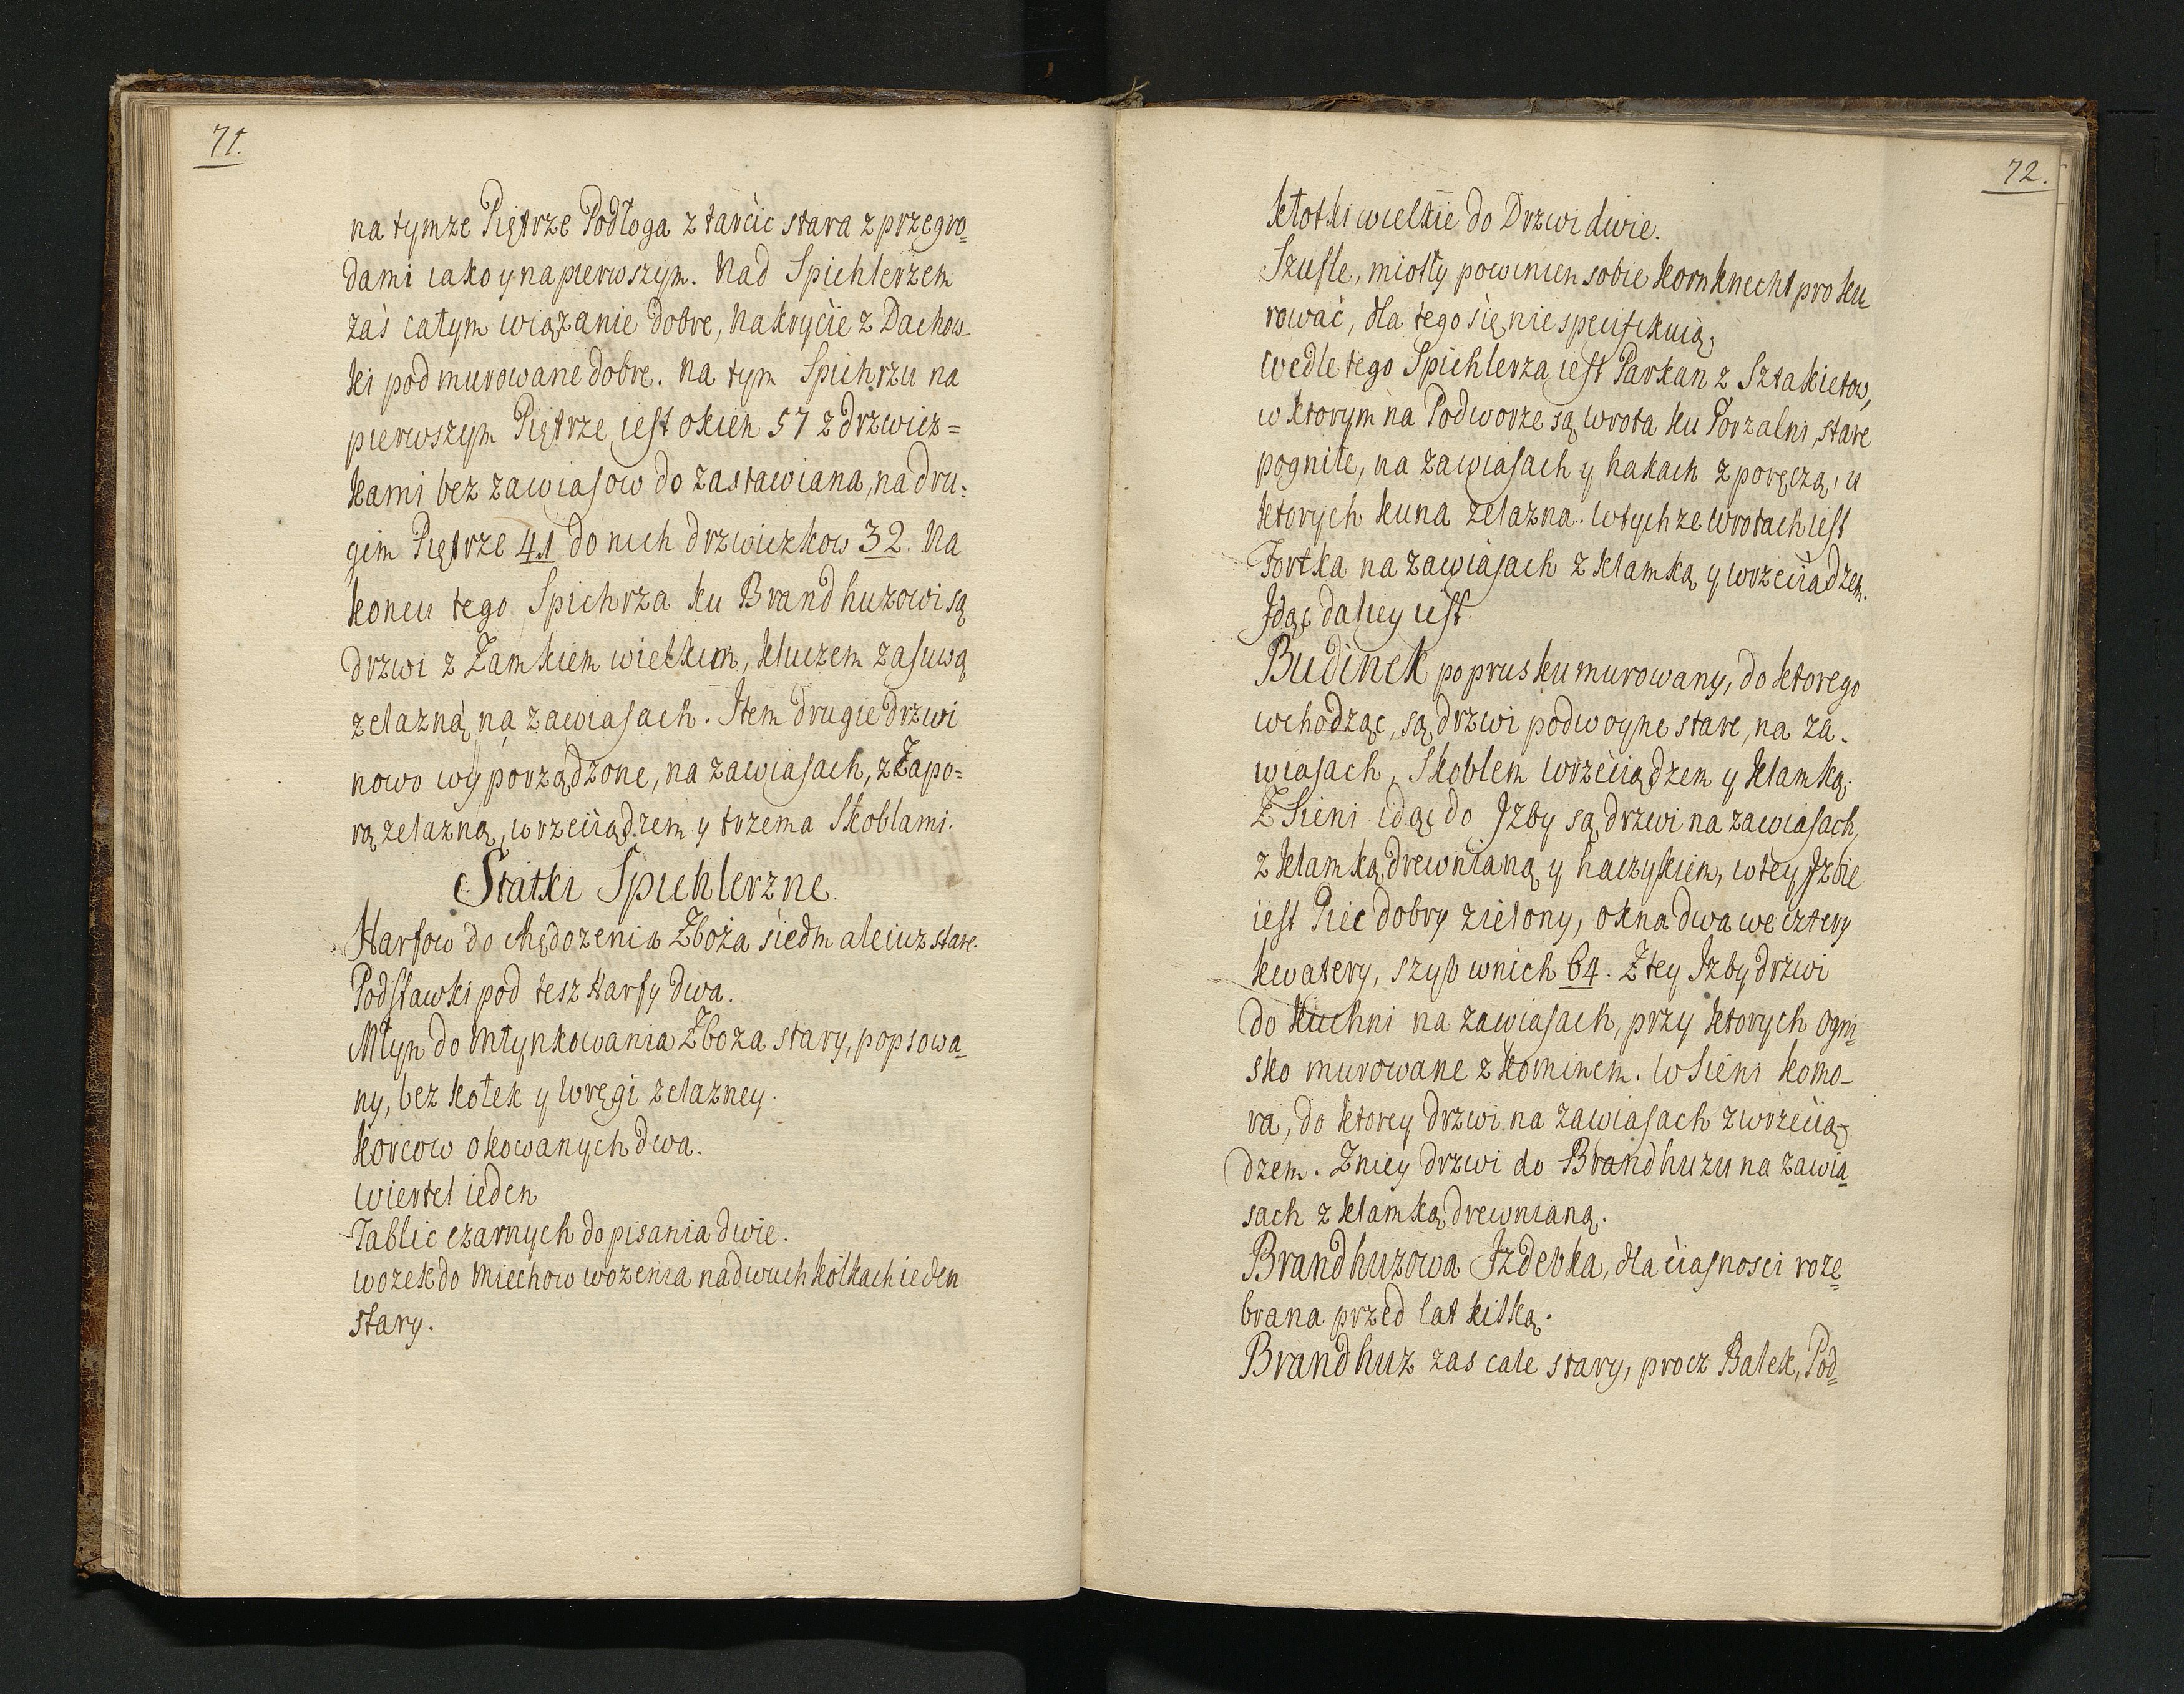 71.
na tymze Piętrze Podłoga z tarcic stara z przegro=
dami iako y na pierwszym. Nad Spichlerzem
zaś całym wiązanie dobre, Nakrycie z Dachow-
ki podmurowane dobre. Na tym Spichrzu na
pierwszym Piętrze iest okien 57 z drzwicz=
kami bez zawiasow do zastawiana, na dru:
gim Piętrze 41 do nich drzwiczkow 32. Na
koncu tego Spichrza ku Brandhuzowi są
drzwi z Zamkiem wielkim, kluczem zasuwą
zelazną na zawiasach. Item drugie drzwi
nowo wyporządzone, na zawiasach, z Zapo=
rą zelazną, wrzeciądzem y trzema Skoblami.
Statki Spichlerzne.
Harfow do chędozenia Zboża siedm ale iuz stare.
Podstawki pod tesz Harfy dwa.
Młyn do Młynkowania Zboza stary, popsowa-
ny, bez kołek y Wręgi zelazney.
Korcow okowanych dwa.
Wiertel ieden
Tablic czarnych do pisania dwie.
wozek do Miechow wozenia na dwuch kółkach ieden
stary.
72.
Kłotki wielkie do Drzwi dwie.
Szufle, miotły powinien sobie Kornknecht proku
rować, dla tego się nie specifikuią,
Wedle tego Spichlerza iest Parkan z Sztakietow,
w ktorym na Podworze są wrota ku Gorzalni stare
pogniłe, na zawiasach y hakach z poręczą, u
ktorych kuna zelazna. W tychze Wrotach iest
Fortka na zawiasach z klamką y wrzeciądzem.
Idąc daley iest
Budinek po prusku murowany, do ktorego
wchodząc, są drzwi podwoyne stare, na za-
wiasach, Skoblem wrzeciądzem y klamką.
Z Sieni idąc do Izby są drzwi na zawiasach,
z klamką drewnianą y haczykiem, w tey Izbie
iest Piec dobry zielony, okna dwa we cztery
kwatery, szyb w nich 64. Z tey Izby drzwi
do kuchni na zawiasach, przy ktorych Ogni=
sko murowane z kominem. W Sieni komo-
ra, do ktorey drzwi na zawiasach z wrzecią-
dzem. Z niey drzwi do Brandhuzu na zawia=
sach z klamką drewnianą.
Brandhuzowa Izdebka, dla ciasnosci roze=
brana przed lat kilką.
Brandhuz zas cale stary, procz Balek, Pod=